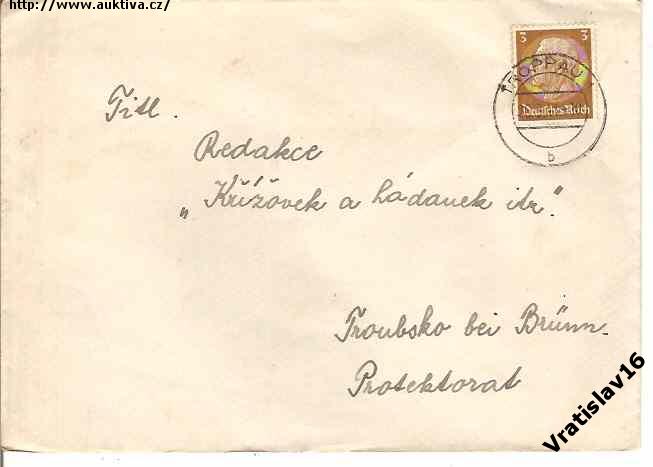 http://www.auktiva.cz/
3 3
TROPPAU
Deutsches Reich
b
Titl.
Redakce
„Křížovek a hádanek itr."
Troubsko bei Brünn.
Protektorat
Vratislav16